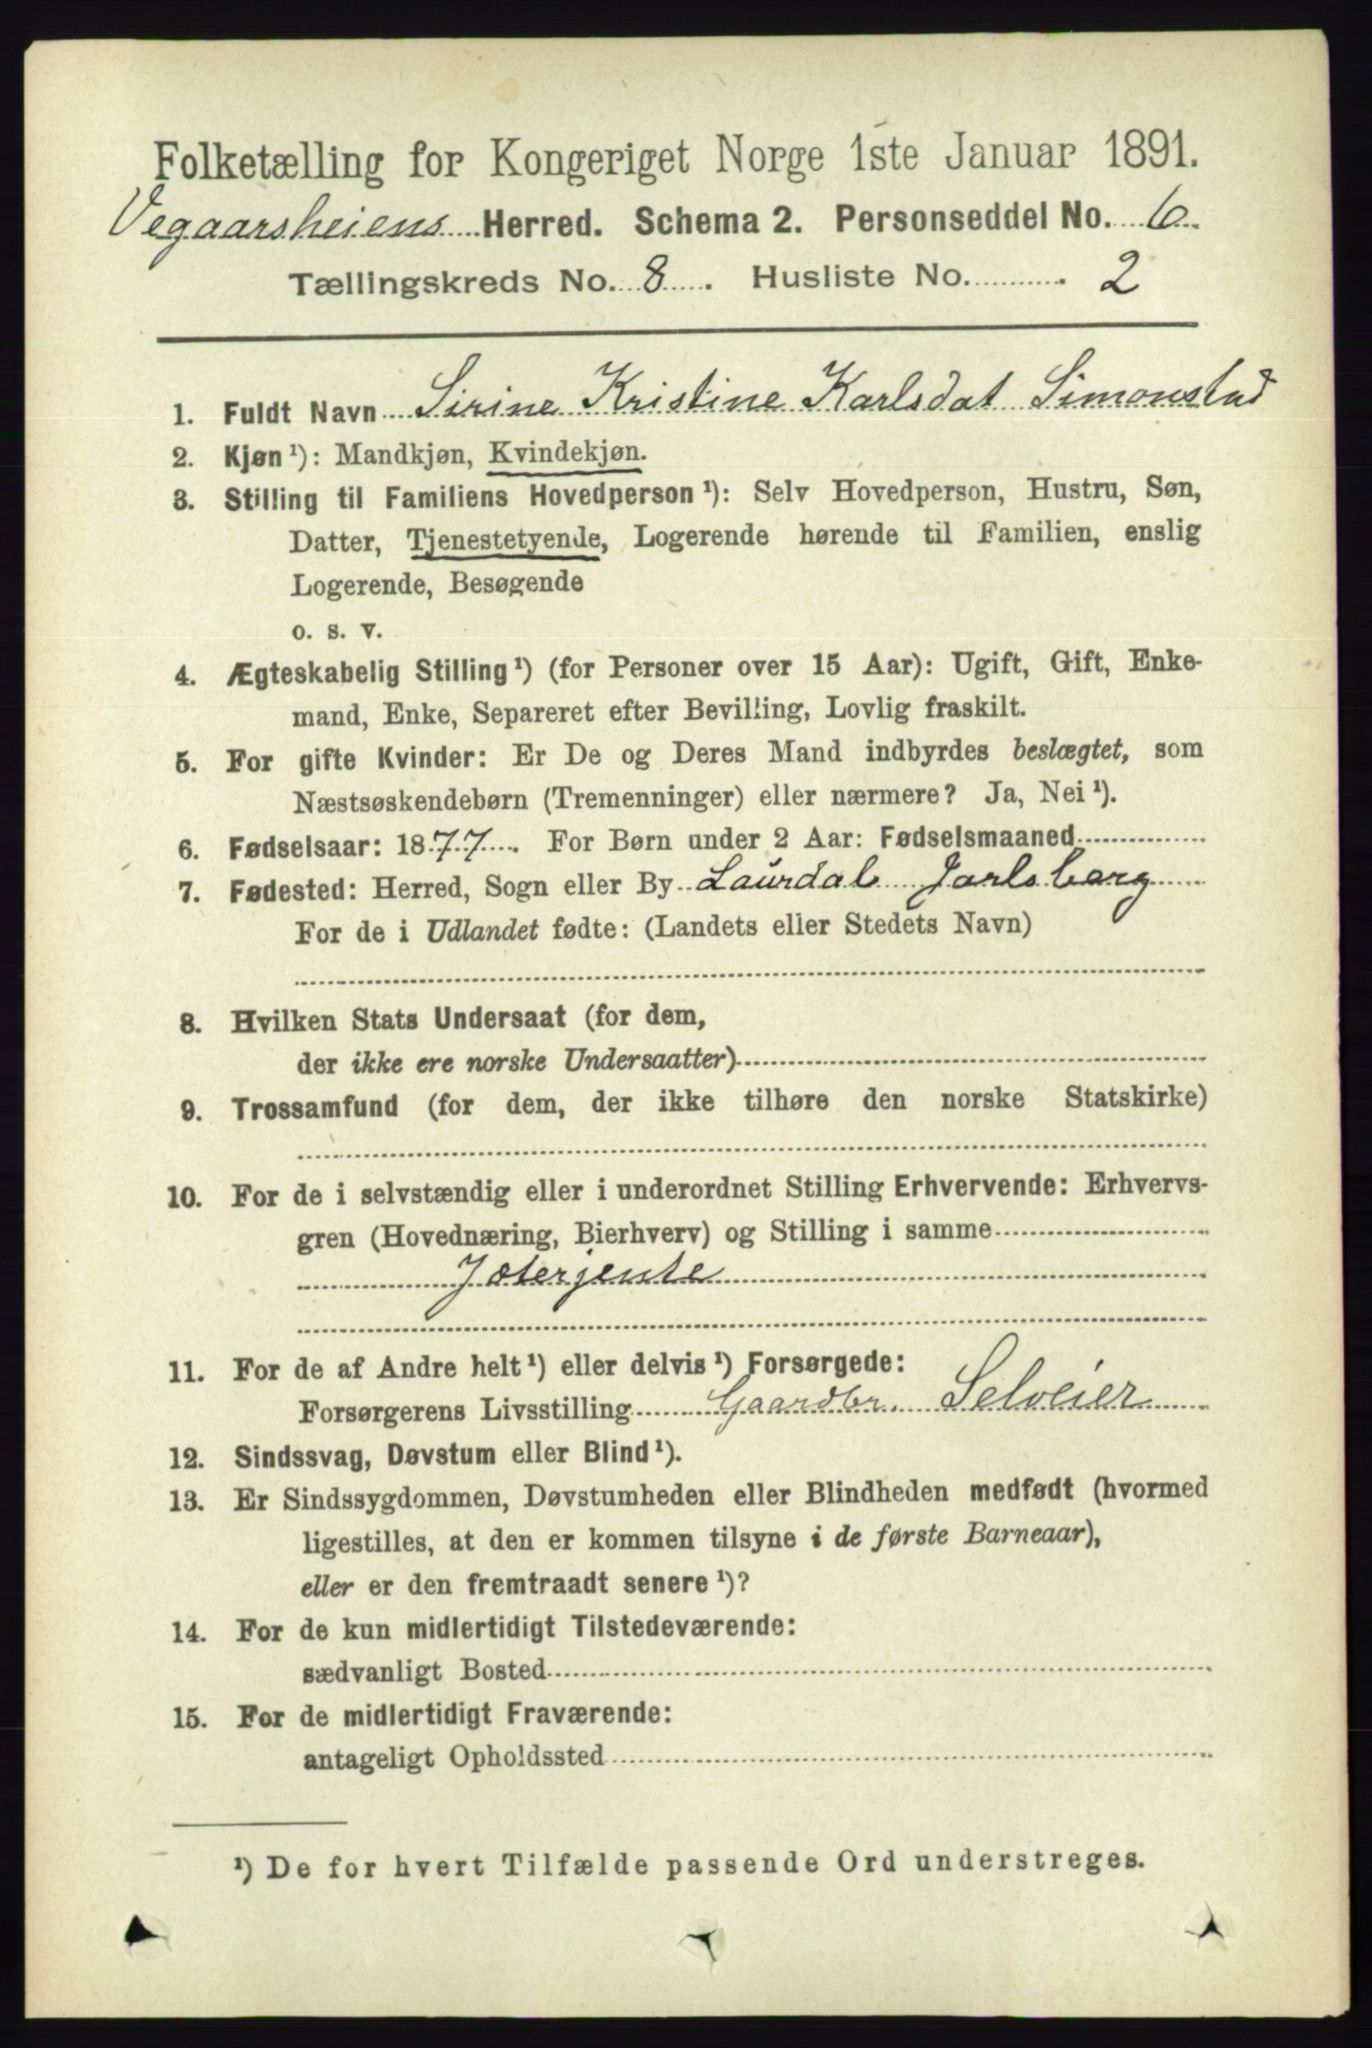 Folketælling for Kongeriget Norge 1ste Januar 1891.
Vegaarsheiens Herred. Schema 2. Personseddel No. 6
Tællingskreds No. 8. Husliste No. 2
1. Fuldt Navn Sirine Kristine Karlsdat Simonstad
2. Kjøn¹): Mandkjøn, Kvindekjøn.
3. Stilling til Familiens Hovedperson¹): Selv Hovedperson, Hustru, Søn,
Datter, Tjenestetyende, Logerende hørende til Familien, enslig
Logerende, Besøgende
o. s. v.
4. Ægteskabelig Stilling¹) (for Personer over 15 Aar): Ugift, Gift, Enke-
mand, Enke, Separeret efter Bevilling, Lovlig fraskilt.
5. For gifte Kvinder: Er De og Deres Mand indbyrdes beslægtet, som
Næstsøskendebørn (Tremenninger) eller nærmere? Ja, Nei¹).
6. Fødselsaar: 1877. For Børn under 2 Aar: Fødselsmaaned
7. Fødested: Herred, Sogn eller By Laurdal Jarlsberg
For de i Udlandet fødte: (Landets eller Stedets Navn)
8. Hvilken Stats Undersaat (for dem,
der ikke ere norske Undersaatter)
9. Trossamfund (for dem, der ikke tilhøre den norske Statskirke)
10. For de i selvstændig eller i underordnet Stilling Erhvervende: Erhvervs-
gren (Hovednæring, Bierhverv) og Stilling i samme
Jæterjente
11. For de af Andre helt¹) eller delvis¹) Forsørgede:
Forsørgerens Livsstilling Gaardbr. Selveier
12. Sindssvag, Døvstum eller Blind¹).
13. Er Sindssygdommen, Døvstumheden eller Blindheden medfødt (hvormed
ligestilles, at den er kommen tilsyne i de første Barneaar),
eller er den fremtraadt senere¹)?
14. For de kun midlertidigt Tilstedeværende:
sædvanligt Bosted
15. For de midlertidigt Fraværende:
antageligt Opholdssted
¹) De for hvert Tilfælde passende Ord understreges.